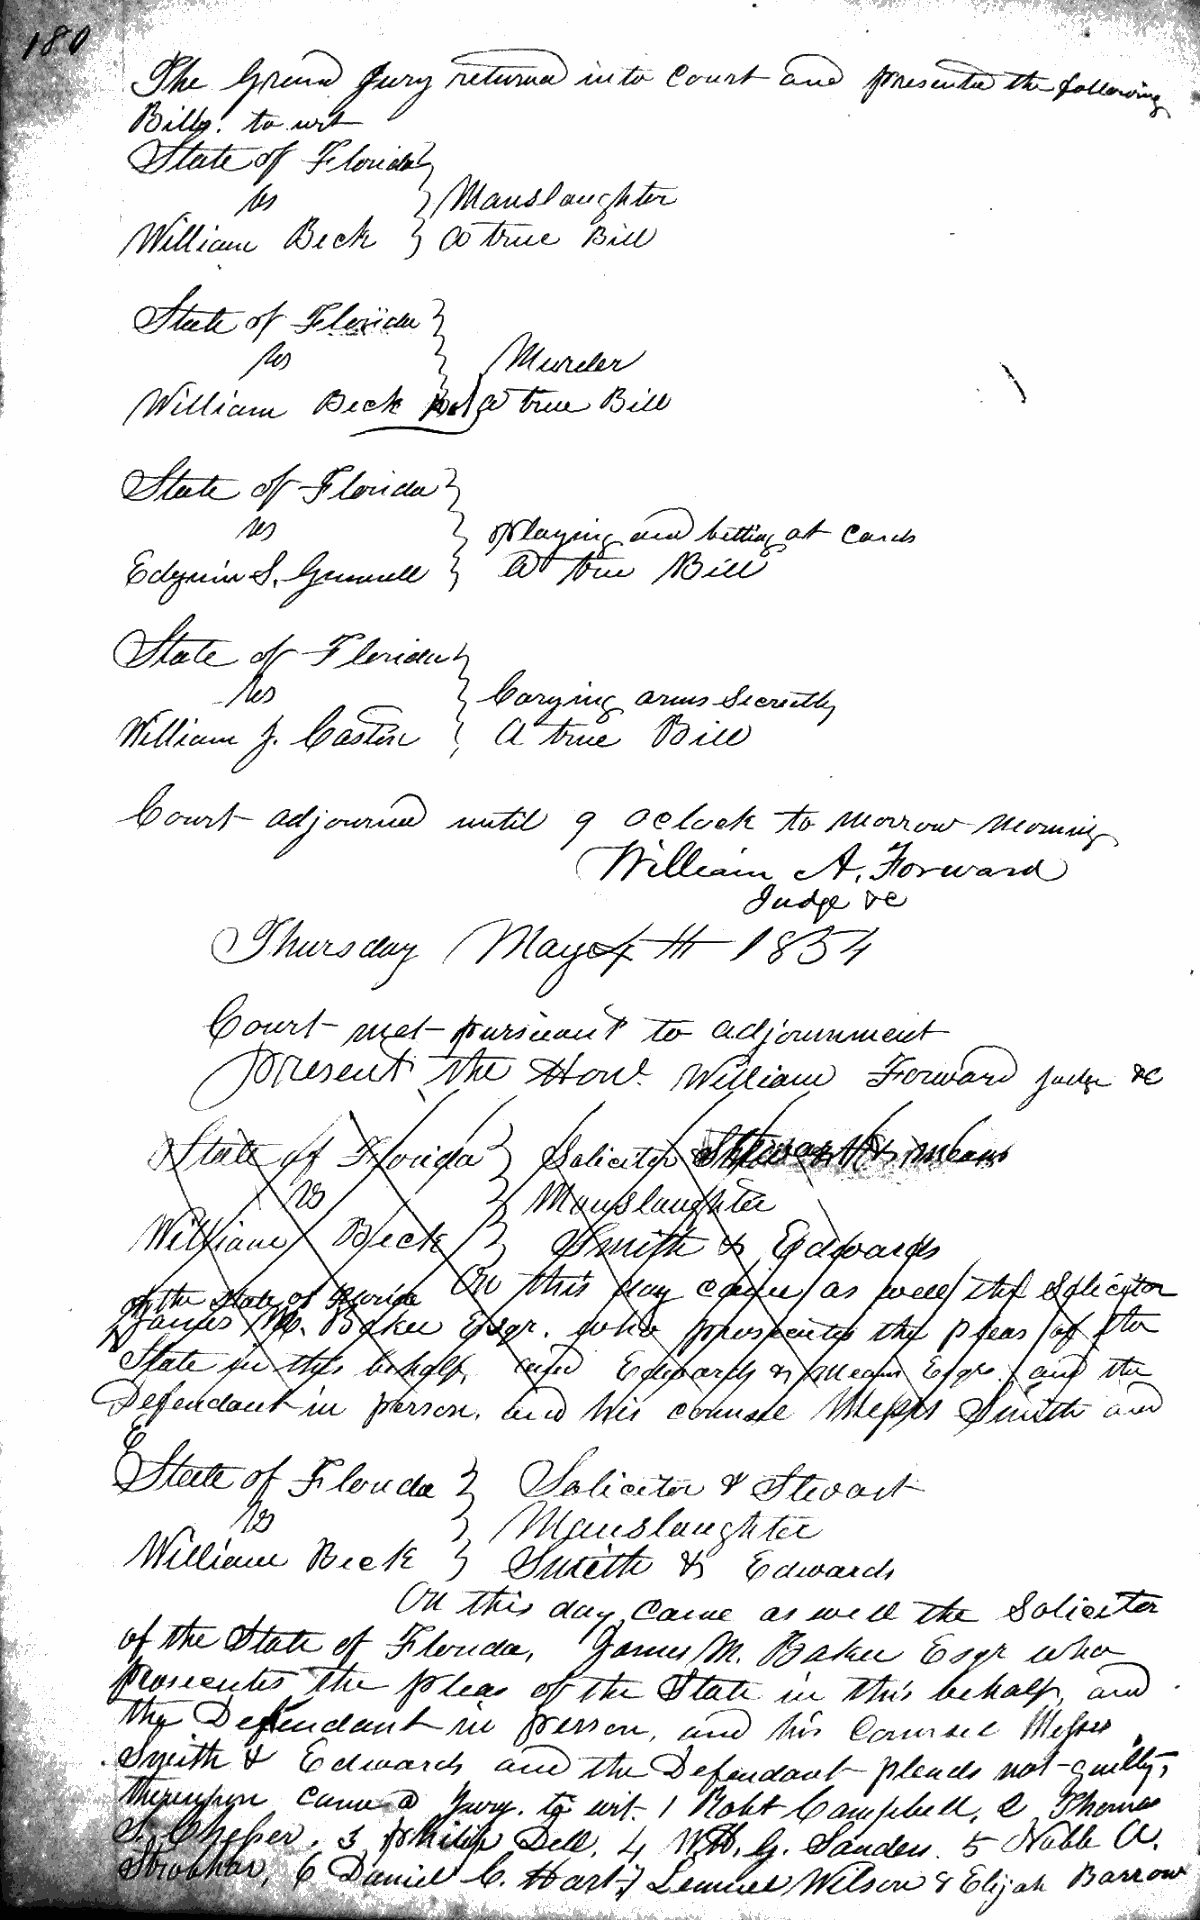 180
The Grand Jury returned into Court and presented the following
Bills. to wit
State of Florida
vs Manslaughter
William Beck a true Bill
State of Florida
vs Murder
William Beck a true Bill
State of Florida
vs playing and betting at Cards
S. A true Bill
State of Florida
vs Carying arms Secreetly
William J. A true Bill
Court adjourned until 9 oclock to morrow morning
William A. Forward
Judge &c
Thursday May 4th 1854
Court met pursuant to adjournment
present the Honl. William Forward Judge &c
State of Florida Solicitor
vs Manslaughter
William Beck Smith & Edwards
On this day came as well the Solicitor
of the State of Florida
James M. Baker Esqr. who prosecutes the pleas of the
State in this behalf, and Edwards & Means Esqrs. and the
Defendant in person, and his counsel Messrs Smith and
E
State of Florida Solicitor & Stewart
vs Manslaughter
William Beck Smith & Edwards
On this day came as well the Solicitor
of the State of Florida, James M. Baker Esqr who
prosecutes the pleas of the State in this behalf, and
the Defendant in person, and his Counsel Messrs
Smith & Edwards and the Defendant pleads not guilty,
thereupon came a Jury. to wit. 1 Robt Campbell, 2 Thomas
S. 3 Philip Dell, 4 G. Sanders. 5 A.
6 Daniel C. Hart 7 Lemuel Wilson 8 Elijah Barrow